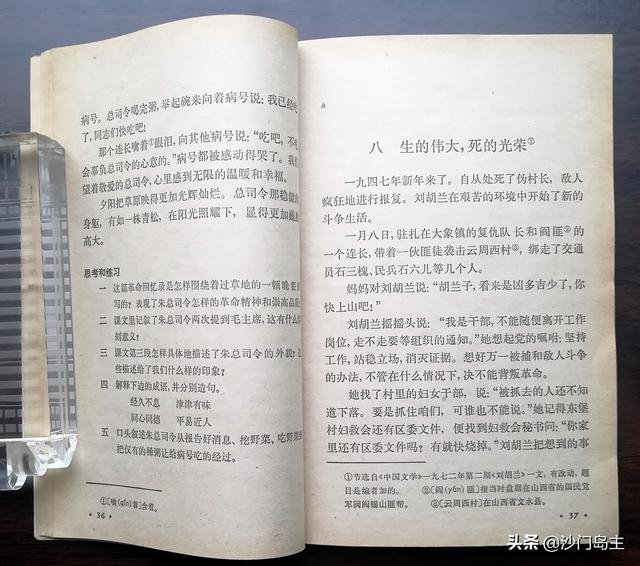 病号。总司令喝完粥,举起碗来向着病号说:我已经吃
了,同志们快吃吧!
那个连长噙着①眼泪,向其他病号说:“吃吧,不
会辜负总司令的心意的。”病号都被感动得哭了。我
望着敬爱的总司令,心里感到无限的温暖和幸福。
夕阳把草原映得更加光辉灿烂。总司令那稳健
身躯,有如一株青松,在阳光照耀下,显得更加巍
高大。
思考和练习
一 这篇革命回忆录是怎样围绕着过草地的一顿晚餐
写的?表现了朱总司令怎样的革命精神和崇高品
二 课文里记叙了朱总司令两次提到毛主席,这有什么
刻意义?
三 课文第三段怎样具体地描述了朱总司令的外貌?
些描述给了我们什么样的印象?
四 解释下边的成语,并分别造句。
经久不息 津津有味
同心同德 平易近人
五 口头叙述朱总司令从报告好消息、挖野菜、吃野菜
把仅有的稀粥让给病号吃的经过。
①〔噙(qín)着〕含着。
· 36 ·
八 生的伟大,死的光荣①
一九四七年新年来了。自从处死了伪村长,敌人
疯狂地进行报复。刘胡兰在艰苦的环境中开始了新的
斗争生活。
一月八日,驻扎在大象镇的复仇队长和阎匪②的
一个连长,带着一伙匪徒袭击云周西村③,绑走了交通
员石三槐、民兵石六儿等几个人。
妈妈对刘胡兰说:“胡兰子,看来是凶多吉少了,你
快上山吧!”
刘胡兰摇摇头说:“我是干部,不能随便离开工作
岗位,走不走要等组织的通知。”她想起党的嘱咐:坚持
工作,站稳立场,消灭证据。想好万一被捕和敌人斗争
的办法,不管在什么情况下,决不能背叛革命。
她找了村里的妇女干部,说:“被抓去的人还不知
道下落。要是抓住咱们,可谁也不能说。”她记得东堡
村妇救会还有区委文件,便找到妇救会秘书问:“你家
里还有区委文件吗?有就快烧掉。”刘胡兰把想到的事
①节选自《中国文学》一九七二年第二期《刘胡兰》一文,有改动,题
目是编者加的。 ②〔阎(yán)匪〕指当时盘踞在山西省的国民党
军阀阎锡山匪帮。 ③〔云周西村〕在山西省文水县。
· 37 ·
头条 @沙门岛主